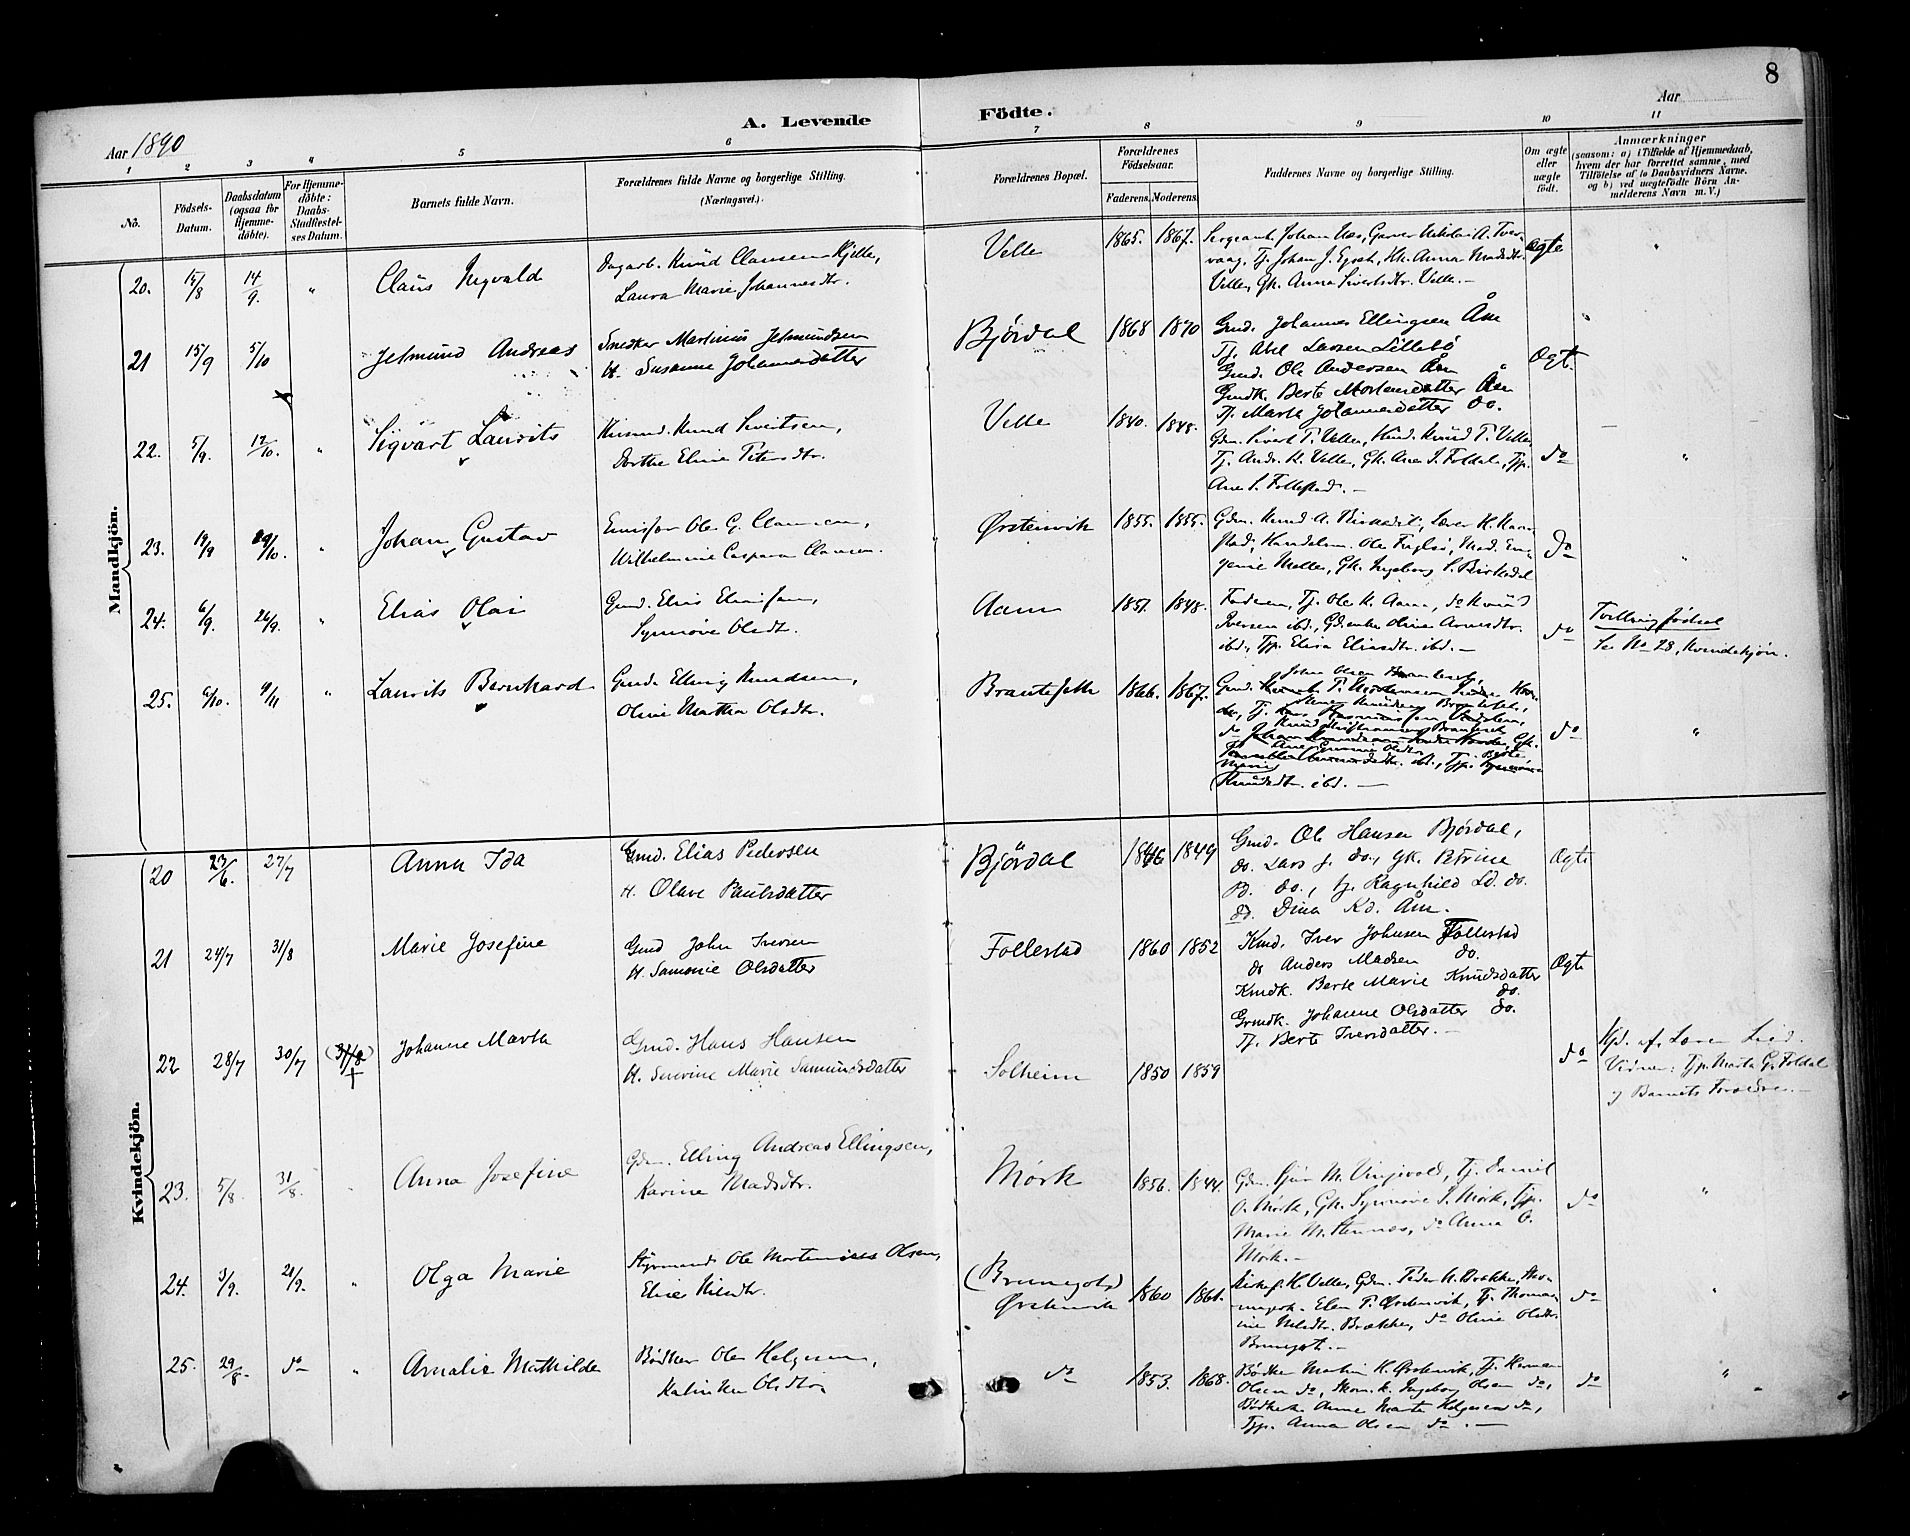 8
A. Levende Födte.
Aar 1890
Aar
1 2 3 4 5 6 7 8 9 10 11
No.
Födsels-Datum.
Daabsdatum (ogsaa for Hjemme-döbte).
For Hjemme-döbte: Daabs-Stadfæstel-ses Datum.
Barnets fulde Navn.
Forældrenes fulde Navne og borgerlige Stilling. (Næringsvei.)
Forældrenes Bopæl.
Forældrenes Födselsaar.
Faderens. Moderens.
Faddernes Navne og borgerlige Stilling.
Om ægte eller uægte födt.
Anmærkninger (saasom: a) i Tilfælde af Hjemmedaab, hvem der har forrettet samme, med Tilföielse af to Daabsvidners Navne. og b) ved uægtefödte Börn An-melderens Navn m. V.)
Mandkjön.
20. 15/8 14/9. " Claus Ingvald
Dagarb. Knud Clausen Kjelle,
Laura Marie Johannesdtr.
Velle 1865. 1867.
Sergeant Johan Aas, Garver Nikolai A. Tver-
vaag, Tj. Johan J. Egset, Kk. Anna Madsdtr.
Velle, Gk. Anna Sivertsdtr. Velle. —
Ægte "
21 15/9 5/10 Jetmund Andreas
Snedker Martinus Jetmundsen
H. Susanne Johannesdatter
Björdal 1868 1870
Gmd. Johannes Ellingsen Åm
Tj. Abel Larsen Lillebö
Gmd. Ole Andersen Åm
Gmdk. Berte Mortensdatter Åm
Tj. Marta Johannesdatter do.
Ægt. "
22. 5/9. 12/10. " Sigvart Laurits
Husmd. Knud Sivertsen,
Dorthe Eline Petersdtr.
Velle 1840. 1848.
Gdm. Sivert P. Velle, Husmd. Knud P. Velle
Tj. Andr. K. Velle, Gk. Ane S. Foldal, Tjp.
Ane S. Follestad. —
do "
23. 19/9 /10. " Johan Gustav
Emissær Ole G. Clausen,
Wilhelmine Caspara Clausen.
Ørstenvik 1855. 1855.
Gdm. Knud A. Birkedal, Lærer H. Kaar-
stad, Handelsm. Ole Fuglsø, Mad. Eu-
genie Møller, Gk. Ingeborg S. Birkedal
do "
24. 6/9. 26/9. " Elias Olai
Gmd. Elias Eliassen,
Synnøve Olsdt.
Aam 1851. 1848.
Faderen, Tj. Ole K. Aam, do Knud
Iversen ibd., Gdenke Oline Arnesdtr.
ibd., Tjp. Elisa Eliasdtr. ibd. —
do
Tvillingfødsel
Se No 28, Kvindekjøn.
25. 6/10. 9/11 " Laurits Bernhard
Gmd. Elling Knudsen,
Oline Martha Olsdtr.
Brauteseth 1866. 1867.
Knudsdtr. ibd. —
do "
Kvindekjön.
20 23/6. 27/7 Anna Ida
Gmd. Elias Pedersen
H. Olave Paulsdatter
Björdal 1846 1849
Gmd. Ole Hansen Björdal,
do. Lars J. do., gk. Petrine
Pd. do., tj. Ragnhild Ld. do.
do. Dina Kd. Åm.
Ægte
21 24/7 31/8 Marie Josefine
Gmd John Iversen
H. Sammie Olsdatter
Follestad 1860 1852
Kmd. Iver Johnsen Follestad
do Anders Madsen do.
Kmdk. Berte Marie Knudsdatter do.
Grmdk. Johanne Olsdatter do.
Tj. Berte Iversdatter. —
Ægte
22 28/7 30/7 (31/8) † Johanne Marta
Gmd. Hans Hansen
H. Severine Marie Samundsdatter
Solheim 1850 1859
do
Hjd. af Læren Lied.
Vidner: Tjp. Marta G. Foldal
og Barnets Forældre. —
23. 5/8. 31/8. Anna Josefine
Gdm. Elling Andreas Ellingsen,
Karine Madsdtr.
Mørk 1856. 1844.
Gdm. Sjur M. Vinjevold, Tj. Daniel
O. Mørk, Gk. Synnøve S. Mørk, Tjp.
Marie M. Stennes, do Anna O.
Mørk. —
do "
24. 3/9. 21/9. " Olga Marie
Styrmand Ole Martinius Olsen,
Eline Nilsdtr.
(Brunegot) Ørstenvik 1860 1861.
Kirkesg. K. Velle, Gdm. Peder N. Brække, Ster-
Elen P. Ørstenvik, Tj. Thomas-
ine Nilsdtr. Brække, do Oline Olsdtr.
Brunegot. —
do "
25. 29/8. do " Amalie Mathilde
Bødker Ole Helgesen,
Katinka Olsdtr.
do 1853. 1868.
Bødker Martin K. Ørstenvik, Tj. Herman
Olsen do, Skom.k. Ingeborg Olsen do,
Bødkerk. Anne Marte Helgesen do,
Tjp. Anna Olsen do. —
do "